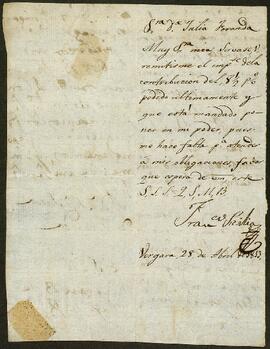 Sra Da Julia Aranda
Muy Sra mia: Sirvase V.
remitirme el impte de la
contribucion del
pedido ultimamente y
que está mandado
poner en mi poder, pues
me hace falta pa atender
a mis obligaciones, favor
que espera de
S. S. S. Q. S. M. B.
Franca
Vergara 25 de Abril